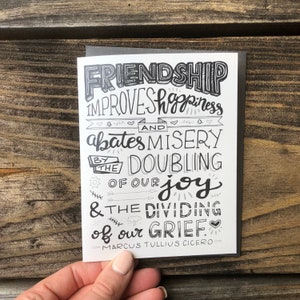 FRIENDSHIP
IMPROVES happiness
AND
abates MISERY
BY THE DOUBLING
OF OUR joy
& THE DIVIDING
of our GRIEF.
MARCUS TULLIUS CICERO